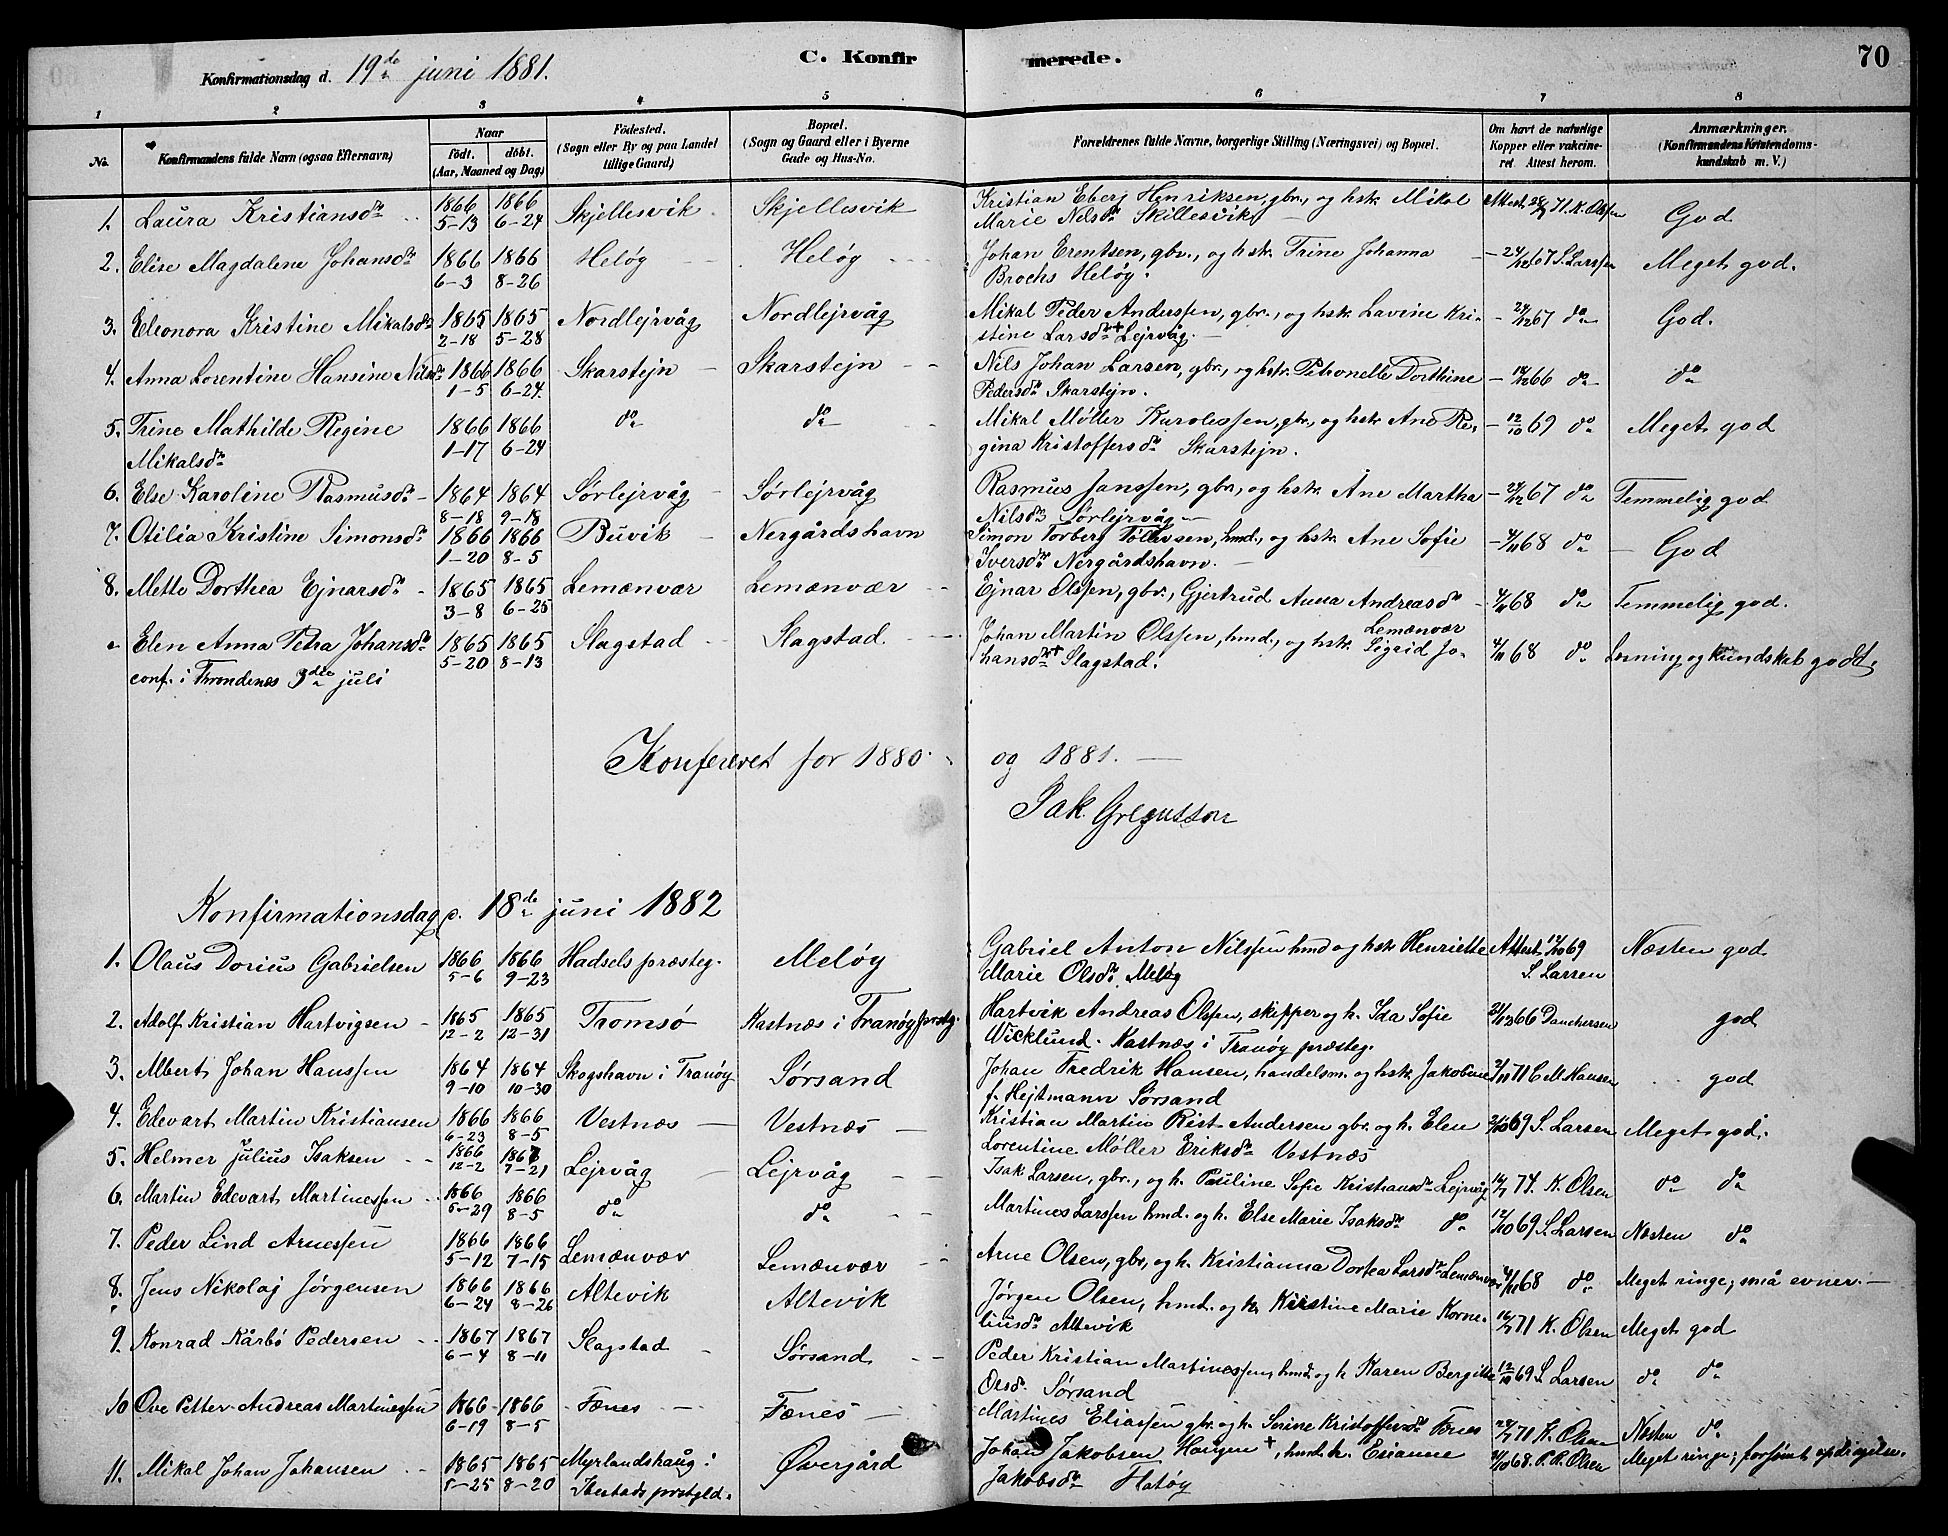 Konfirmationsdag d. 19de juni 1881.
C. Konfirmerede.
70
1 2 3 4 5 6 7 8
No.
Konfirmandens fulde Navn (ogsaa Efternavn)
Naar
födt. döbt.
(Aar, Maaned og Dag)
Födested.
(Sogn eller By og paa Landet
tillige Gaard)
Bopæl.
(Sogn og Gaard eller i Byerne
Gade og Hus-No.
Forældrenes fulde Navne, borgerlige Stilling (Næringsvei) og Bopæl.
Om havt de naturlige
Kopper eller vakcine-
ret. Attest herom.
Anmærkninger.
(Konfirmandens Kristendoms-
kundskab m. V.)
1. Laura Kristiansdr 1866 5-13 1866 6-24 Skjellesvik Skjellesvik Kristian Eberg Henriksen, gbr., og hstr. Mikal
Marie Nilsdr Skillesvik Attest 71 K. Olsen God
2. Elise Magdalene Johansdr 1866 6-3 1866 8-26 Heløg Heløg Johan Erentsen, gbr., og hstr. Trine Johanna
Brochs Heløg. 67 S. Larsen Meget god.
3. Eleonora Kristine Mikalsdr 1865 2-18 1865 5-28 Nordlejrvåg Nordlejrvåg Mikal Peder Anderssen, gbr., og hstr. Lavine Kri-
stine Larsdr + Lejrvåg. 67 do God.
4. Anna Lorentine Hansine Nilsdr 1866 1-5 1866 6-24 Skarstejn Skarstejn Nils Johan Larsen, gbr., og hstr. Petronelle Dorthine
Pedersdr Skarstejn. 66 do do
5. Trine Mathilde Regine 1866 1-17 1866 6-24 do do Mikal Møller, gbr., og hstr. Ane Re-
Mikalsdr gina Kristoffersdr Skarstejn. 12/10 69 do Meget god
6. Else Karoline Rasmusdr 1864 8-18 1864 9-18 Sørlejrvåg Sørlejrvåg Rasmus Janssen, gbr., og hstr. Ane Martha
Nilsdr Sørlejrvåg 67 do Temmelig god
7. Otilia Kristine Simonsdr 1866 1-20 1866 8-5 Buvik Nergårdshavn Simon Torberg Tollevsen, hmd., og hstr. Ane Sofie
Iversdr Nergårdshavn. 4/11 68 do God
8. Mette Dorthea Ejnarsdr 1865 3-8 1865 6-25 Lemænvær Lemænvær Ejnar Olssen, gbr., Gjertrud Anna Andreasdr
Lemænvær 4/11 68 do Temmelig god.
" Elen Anna Petra Johansdr 1865 5-20 1865 8-13 Slagstad Slagstad Johan Martin Olssen, hmd., og hstr. Sigrid Jo-
conf. i Trondenes 3die juli hansdr + Slagstad. 4/11 68 do Læsning og kundskab godt,
Konfereret for 1880 og 1881.
Jak. Gregusson
Konfirmationsdag d. 18de juni 1882
1. Olaus Dorius Gabrielsen 1866 5-6 1866 9-23 Hadsels præsteg. Meløy Gabriel Anton Nilssen hmd og hstr Henriette
Marie Olsdr, Meløg Attest 12/10 69 S. Larsen Næsten god
2. Adolf Kristian Hartvigsen 1865 12-2 1865 12-31 Tromsø Kastnæs i Tranøy prstg. Hartvik Andreas Olssen, skipper og h. Ida Sofie
Wicklund. Kastnæs i Tranøy præsteg. 66 Danchersen god
3. Albert Johan Hanssen 1864 9-10 1864 10-30 Skogshavn i Tranøy Sørsand Johan Fredrik Hansen, handelsm. og hstr. Jakobine
f. Hejtmann Sørsand 71 C. M. Hansen god
4. Edevart Martin Kristiansen 1866 6-23 1866 8-5 Vestnæs Vestnæs Kristian Martin Rist Andersen gbr. og h. Elen
Lorentine Møller Eriksdr Vestnæs 69 S. Larsen Meget god.
5. Helmer Julius Isaksen 1866 12-2 1867 7-21 Lejrvåg Lejrvåg Isak Larsen, gbr., og h. Pauline Sofie Kristiansdr Lejrvåg 74. K. Olsen do do
6. Martin Edevart Martinessen 1866 5-29 1866 8-5 do do Martines Larssen hmd. og h. Else Marie Isaksdr do 12/10 69 S. Larsen Næsten do
7. Peder Lind Arnessen 1866 5-12 1866 7-15 Lemænvær Lemænvær Arne Olsen, gbr, og h. Kristianna Dortea Larsdr Lemænvær 4/11 68 do Meget ringe; små evner.
8. Jens Nikolaj Jørgensen 1866 6-24 1866 8-26 Altevik Altevik Jørgen Olsen, hmd. og h. Kirstine Marie Korne-
liusdr Altevik 71 K. Olsen Meget god
9. Konrad Kårbø Pedersen 1867 6-4 1867 8-11 Slagstad Sørsand Peder Kristian Martinessen, hmd. og h. Karen Bergitte
Olsdr. Sørsand 12/10 69 S Larsen do do
10 Ove Petter Andreas Martinessen 1866 6-19 1866 8-5 Fænes Fænes Martines Eliassen gbr. og h. Serine Kristoffersdr Fænes 71 K. Olsen Næsten do
11. Mikal Johan Johansen 1865 5-25 1865 8-20 Myrlandshaug i
Ibestads prstgld. Øvergård Johan Jakobsen Haugen +, hmd. h. Esianne
Jakobsdr Hatøy 68. P. R. Olsen Meget ringe; forsømt opdragelse.